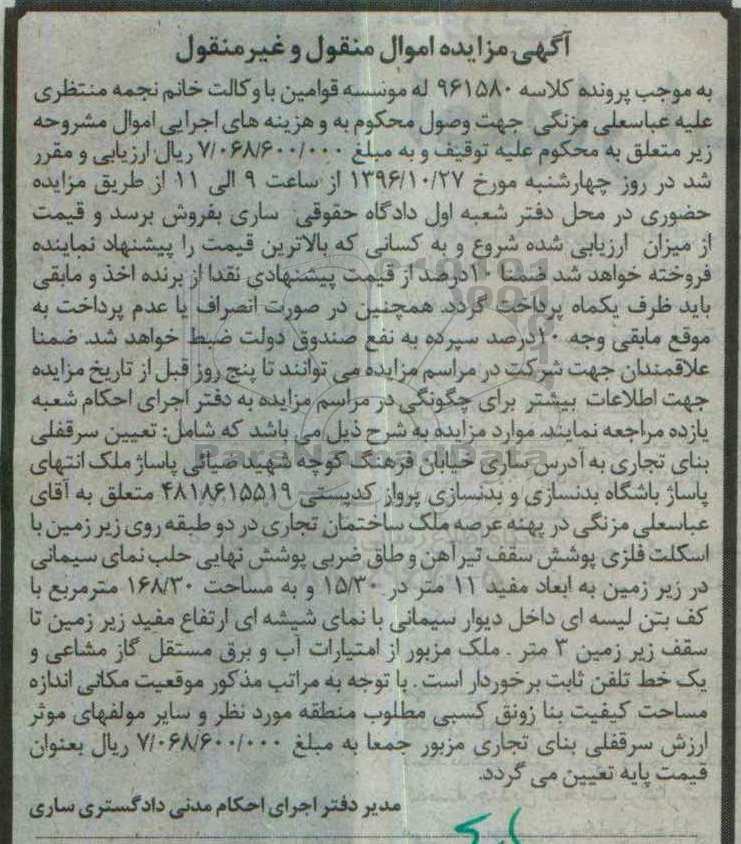 آگهی مزایده اموال منقول و غیر منقول
به موجب پرونده کلاسه ۹۶۱۵۸۰ له موسسه قوامین با وکالت خانم نجمه منتظری
علیه عباسعلی مزنگی جهت وصول محکوم به و هزینه های اجرایی اموال مشروحه
زیر متعلق به محکوم علیه توقیف و به مبلغ ۷/۰۶۸/۶۰۰/۰۰۰ ریال ارزیابی و مقرر
شد در روز چهارشنبه مورخ ۱۳۹۶/۱۰/۲۷ از ساعت ۹ الی ۱۱ از طریق مزایده
حضوری در محل دفتر شعبه اول دادگاه حقوقی ساری بفروش برسد و قیمت
از میزان ارزیابی شده شروع و به کسانی که بالاترین قیمت را پیشنهاد نماینده
فروخته خواهد شد ضمنا ۱۰درصد از قیمت پیشنهادی نقدا از برنده اخذ و مابقی
باید ظرف یکماه پرداخت گردد. همچنین در صورت انصراف یا عدم پرداخت به
موقع مابقی وجه ۱۰درصد سپرده به نفع صندوق دولت ضبط خواهد شد. ضمنا
علاقمندان جهت شرکت در مراسم مزایده می توانند تا پنج روز قبل از تاریخ مزایده
جهت اطلاعات بیشتر برای چگونگی در مراسم مزایده به دفتر اجرای احکام شعبه
یازده مراجعه نمایند. موارد مزایده به شرح ذیل می باشد که شامل: تعیین سرقفلی
بنای تجاری به آدرس ساری خیابان فرهنگ کوچه شهید ضیائی پاساژ ملک انتهای
پاساژ باشگاه بدنسازی و بدنسازی پرواز کدپستی ۴۸۱۸۶۱۵۵۱۹ متعلق به آقای
عباسعلی مزنگی در پهنه عرصه ملک ساختمان تجاری در دو طبقه روی زیر زمین با
اسکلت فلزی پوشش سقف تیرآهن و طاق ضربی پوشش نهایی حلب نمای سیمانی
در زیر زمین به ابعاد مفید ۱۱ متر در ۱۵/۳۰ و به مساحت ۱۶۸/۳۰ مترمربع با
کف بتن لیسه ای داخل دیوار سیمانی با نمای شیشه ای ارتفاع مفید زیر زمین تا
سقف زیر زمین ۳ متر . ملک مزبور از امتیازات آب و برق مستقل گاز مشاعی و
یک خط تلفن ثابت برخوردار است . با توجه به مراتب مذکور موقعیت مکانی اندازه
مساحت کیفیت بنا زونق کسبی مطلوب منطقه مورد نظر و سایر مولفهای موثر
ارزش سرقفلی بنای تجاری مزبور جمعا به مبلغ ۷/۰۶۸/۶۰۰/۰۰۰ ریال بعنوان
قیمت پایه تعیین می گردد.
مدیر دفتر اجرای احکام مدنی دادگستری ساری
ParsNamadData